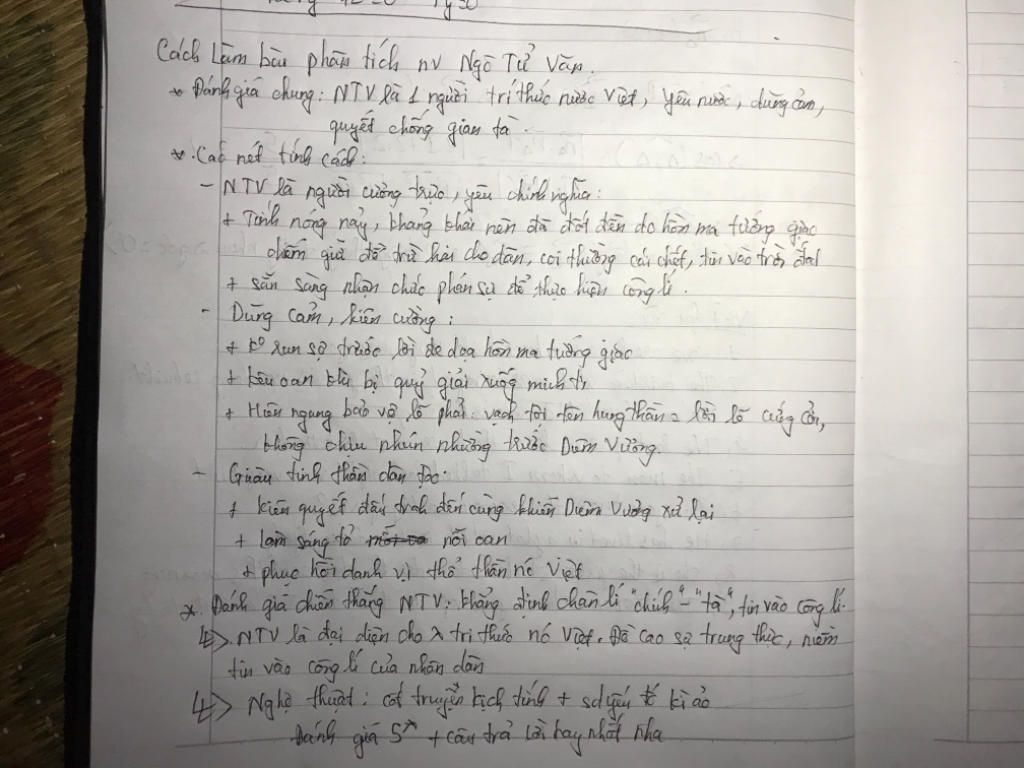 Cách Làm bài phân tích nv Ngô Tử Văn.
* Đánh giá chung: NTV là 1 người trí thức nước Việt, yêu nước, dũng cảm,
quyết chống gian tà.
* Các nét tính cách:
- NTV là người cương trực, yêu chính nghĩa:
+ Tính nóng nảy, khảng khái nên đã đốt đền do hồn ma tướng giặc
chiếm giữ để trừ hại cho dân, coi thường cái chết, tin vào trời đất
+ sẵn sàng nhận chức phán sự để thực hiện công lí.
- Dũng cảm, kiên cường:
+ ko run sợ trước lời đe dọa hồn ma tướng giặc
+ kêu oan khi bị quỷ giải xuống minh ti
+ Hiên ngang bảo vệ lẽ phải: vạch tội tên hung thần = lời lẽ cứng cỏi,
không chịu nhún nhường trước Diêm Vương.
- Giàu tinh thần dân tộc.
+ kiên quyết đấu tranh đến cùng khiến Diêm Vương xử lại
+ làm sáng tỏ nỗi oan
+ phục hồi danh vị thổ thần nc Việt
* Đánh giá chiến thắng NTV: khẳng định chân lí "chính" - "tà", tin vào công lí.
=> NTV là đại diện cho trí thức nc Việt. Đề cao sự trung thực, niềm
tin vào công lí của nhân dân
=> Nghệ thuật: cốt truyện kịch tính + sd yếu tố kì ảo
Đánh giá 5* + câu trả lời hay nhất nha